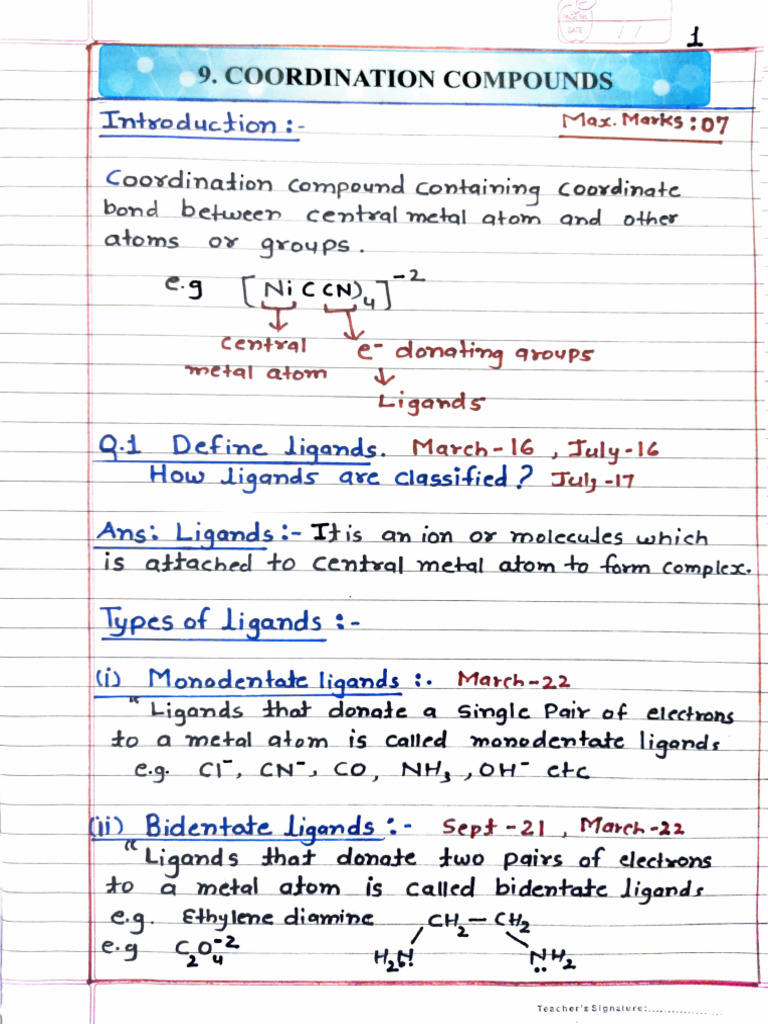 PAGE NO.
DATE / /
1
9. COORDINATION COMPOUNDS
Introduction :-
Max. Marks : 07
Coordination compound containing coordinate
bond between central metal atom and other
atoms or groups.
e.g [Ni(CN)₄]⁻²
central metal atom
e⁻ donating groups
Ligands
Q.1 Define ligands. March-16 , July-16
How ligands are classified? July-17
Ans: Ligands :- It is an ion or molecules which
is attached to central metal atom to form complex.
Types of ligands :-
(i) Monodentate ligands :. March-22
" Ligands that donate a single Pair of electrons
to a metal atom is called monodentate ligands
e.g. Cl⁻, CN⁻, CO, NH₃, OH⁻ etc
(ii) Bidentate ligands :- Sept-21 , March-22
" Ligands that donate two pairs of electrons
to a metal atom is called bidentate ligands
e.g. Ethylene diamine CH₂ — CH₂
e.g C₂O₄⁻² H₂N̈ N̈H₂
Teacher's Signature: